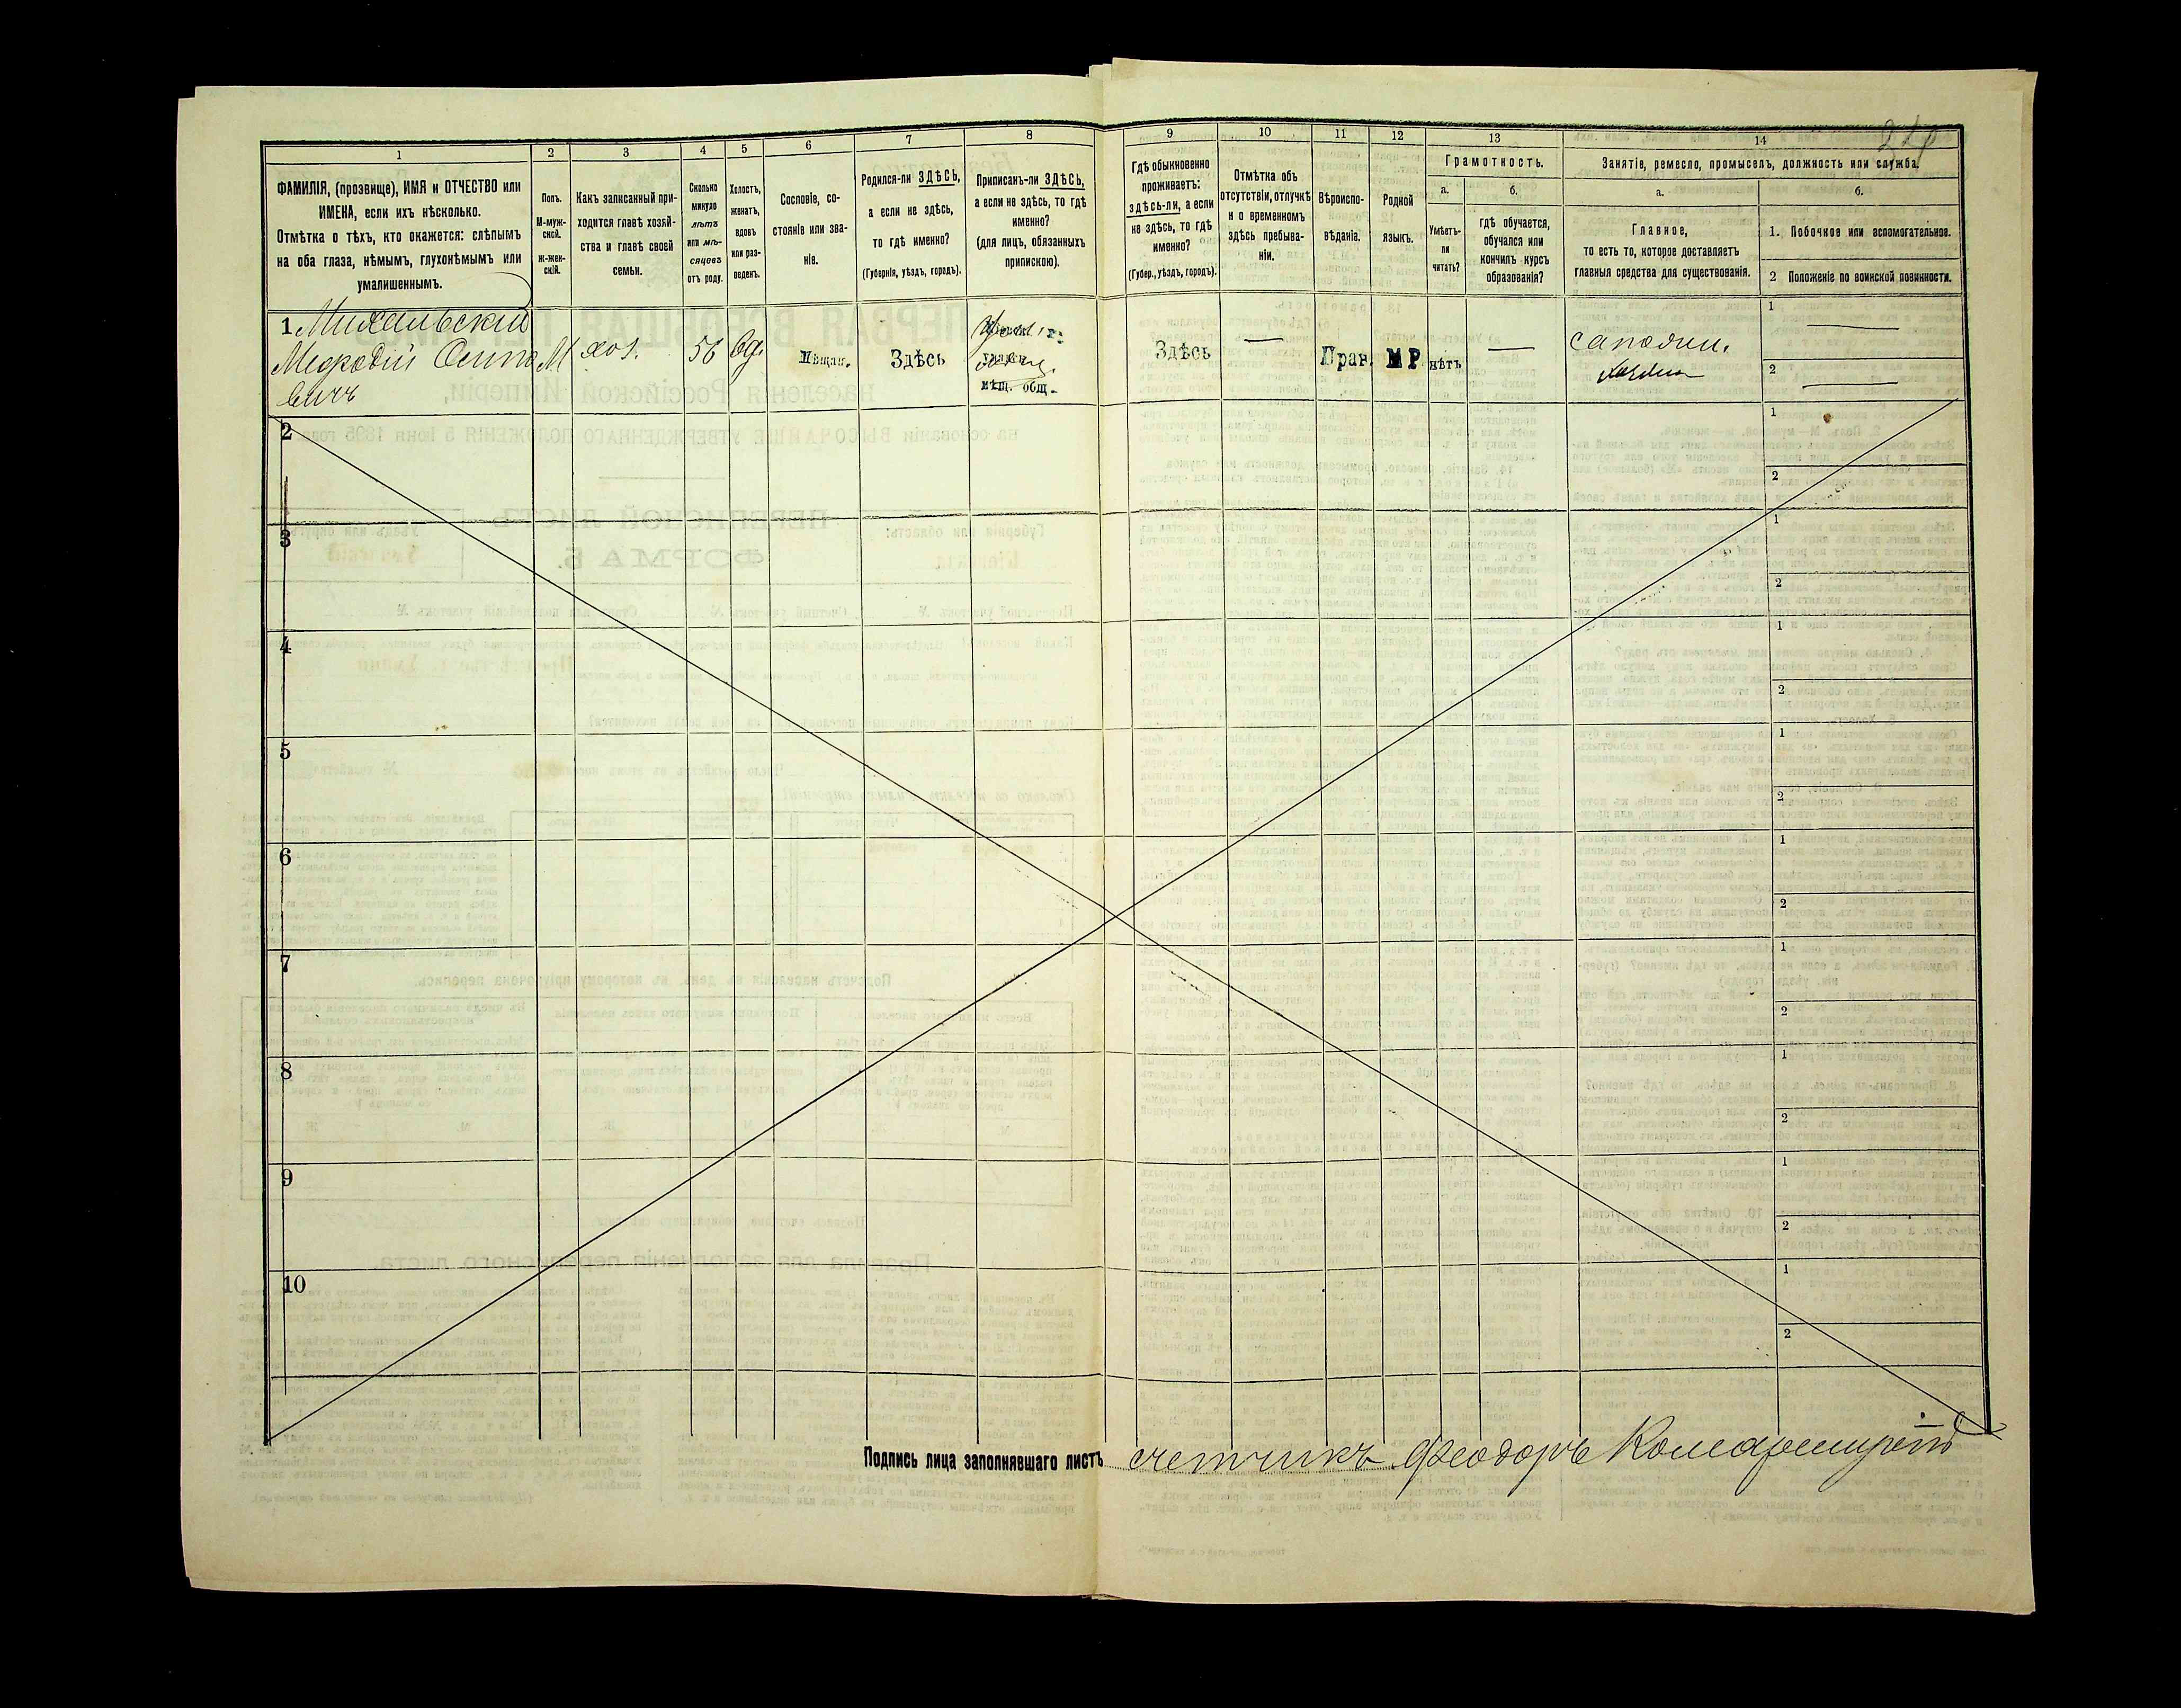 1 2 3 4 5 6 7 8 9 10 11 12 13 14
ФАМИЛІЯ, (прозвище), ИМЯ и ОТЧЕСТВО или
ИМЕНА, если ихъ нѣсколько.
Отмѣтка о тѣхъ, кто окажется: слѣпымъ
на оба глаза, нѣмымъ, глухонѣмымъ или
умалишеннымъ.
Полъ.
М-муж-
ской.
Ж-жен-
скій.
Какъ записанный при-
ходится главѣ хозяй-
ства и главѣ своей
семьи.
Сколько
минуло
лѣтъ
или мѣ-
сяцевъ
отъ роду.
Холостъ,
женатъ,
вдовъ
или раз-
веденъ.
Сословіе, со-
стояніе или зва-
ніе.
Родился-ли ЗДѢСЬ,
а если не здѣсь,
то гдѣ именно?
(Губернія, уѣздъ, городъ).
Приписанъ-ли ЗДѢСЬ,
а если не здѣсь, то гдѣ
именно?
(для лицъ, обязанныхъ
припискою).
Гдѣ обыкновенно
проживаетъ:
здѣсь-ли, а если
не здѣсь, то гдѣ
именно?
(Губер., уѣздъ, городъ).
Отмѣтка объ
отсутствіи, отлучкѣ
и о временномъ
здѣсь пребыва-
ніи.
Вѣроиспо-
вѣданіе.
Родной
языкъ.
Грамотность.
а.
Умѣетъ-
ли
читать?
б.
гдѣ обучается,
обучался или
кончилъ курсъ
образованія?
Занятіе, ремесло, промыселъ, должность или служба.
а.
Главное,
то есть то, которое доставляетъ
главныя средства для существованія.
б.
1. Побочное или вспомогательное.
2 Положеніе по воинской повинности.
1 Михальскій
Осипо
вичъ
М
хоз.
56
вд.
Мѣщан.
Здѣсь
мѣщ. общ.
Здѣсь
—
Прав.
МР
нѣтъ
—
сапожн.
хозяин
1 —
2 —
2
1
2
3
1
2
4
1
2
5
1
2
6
1
2
7
1
2
8
1
2
9
1
2
10
1
2
Подпись лица заполнявшаго листъ счетчикъ Феодоръ